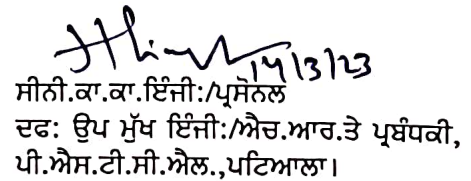 14/3/23
ਸੀਨੀ.ਕਾ.ਕਾ.ਇੰਜੀ:/ਪ੍ਰਸੋਨਲ
ਦਫ: ਉਪ ਮੁੱਖ ਇੰਜੀ:/ਐਚ.ਆਰ.ਤੇ ਪ੍ਰਬੰਧਕੀ,
ਪੀ.ਐਸ.ਟੀ.ਸੀ.ਐਲ.,ਪਟਿਆਲਾ।